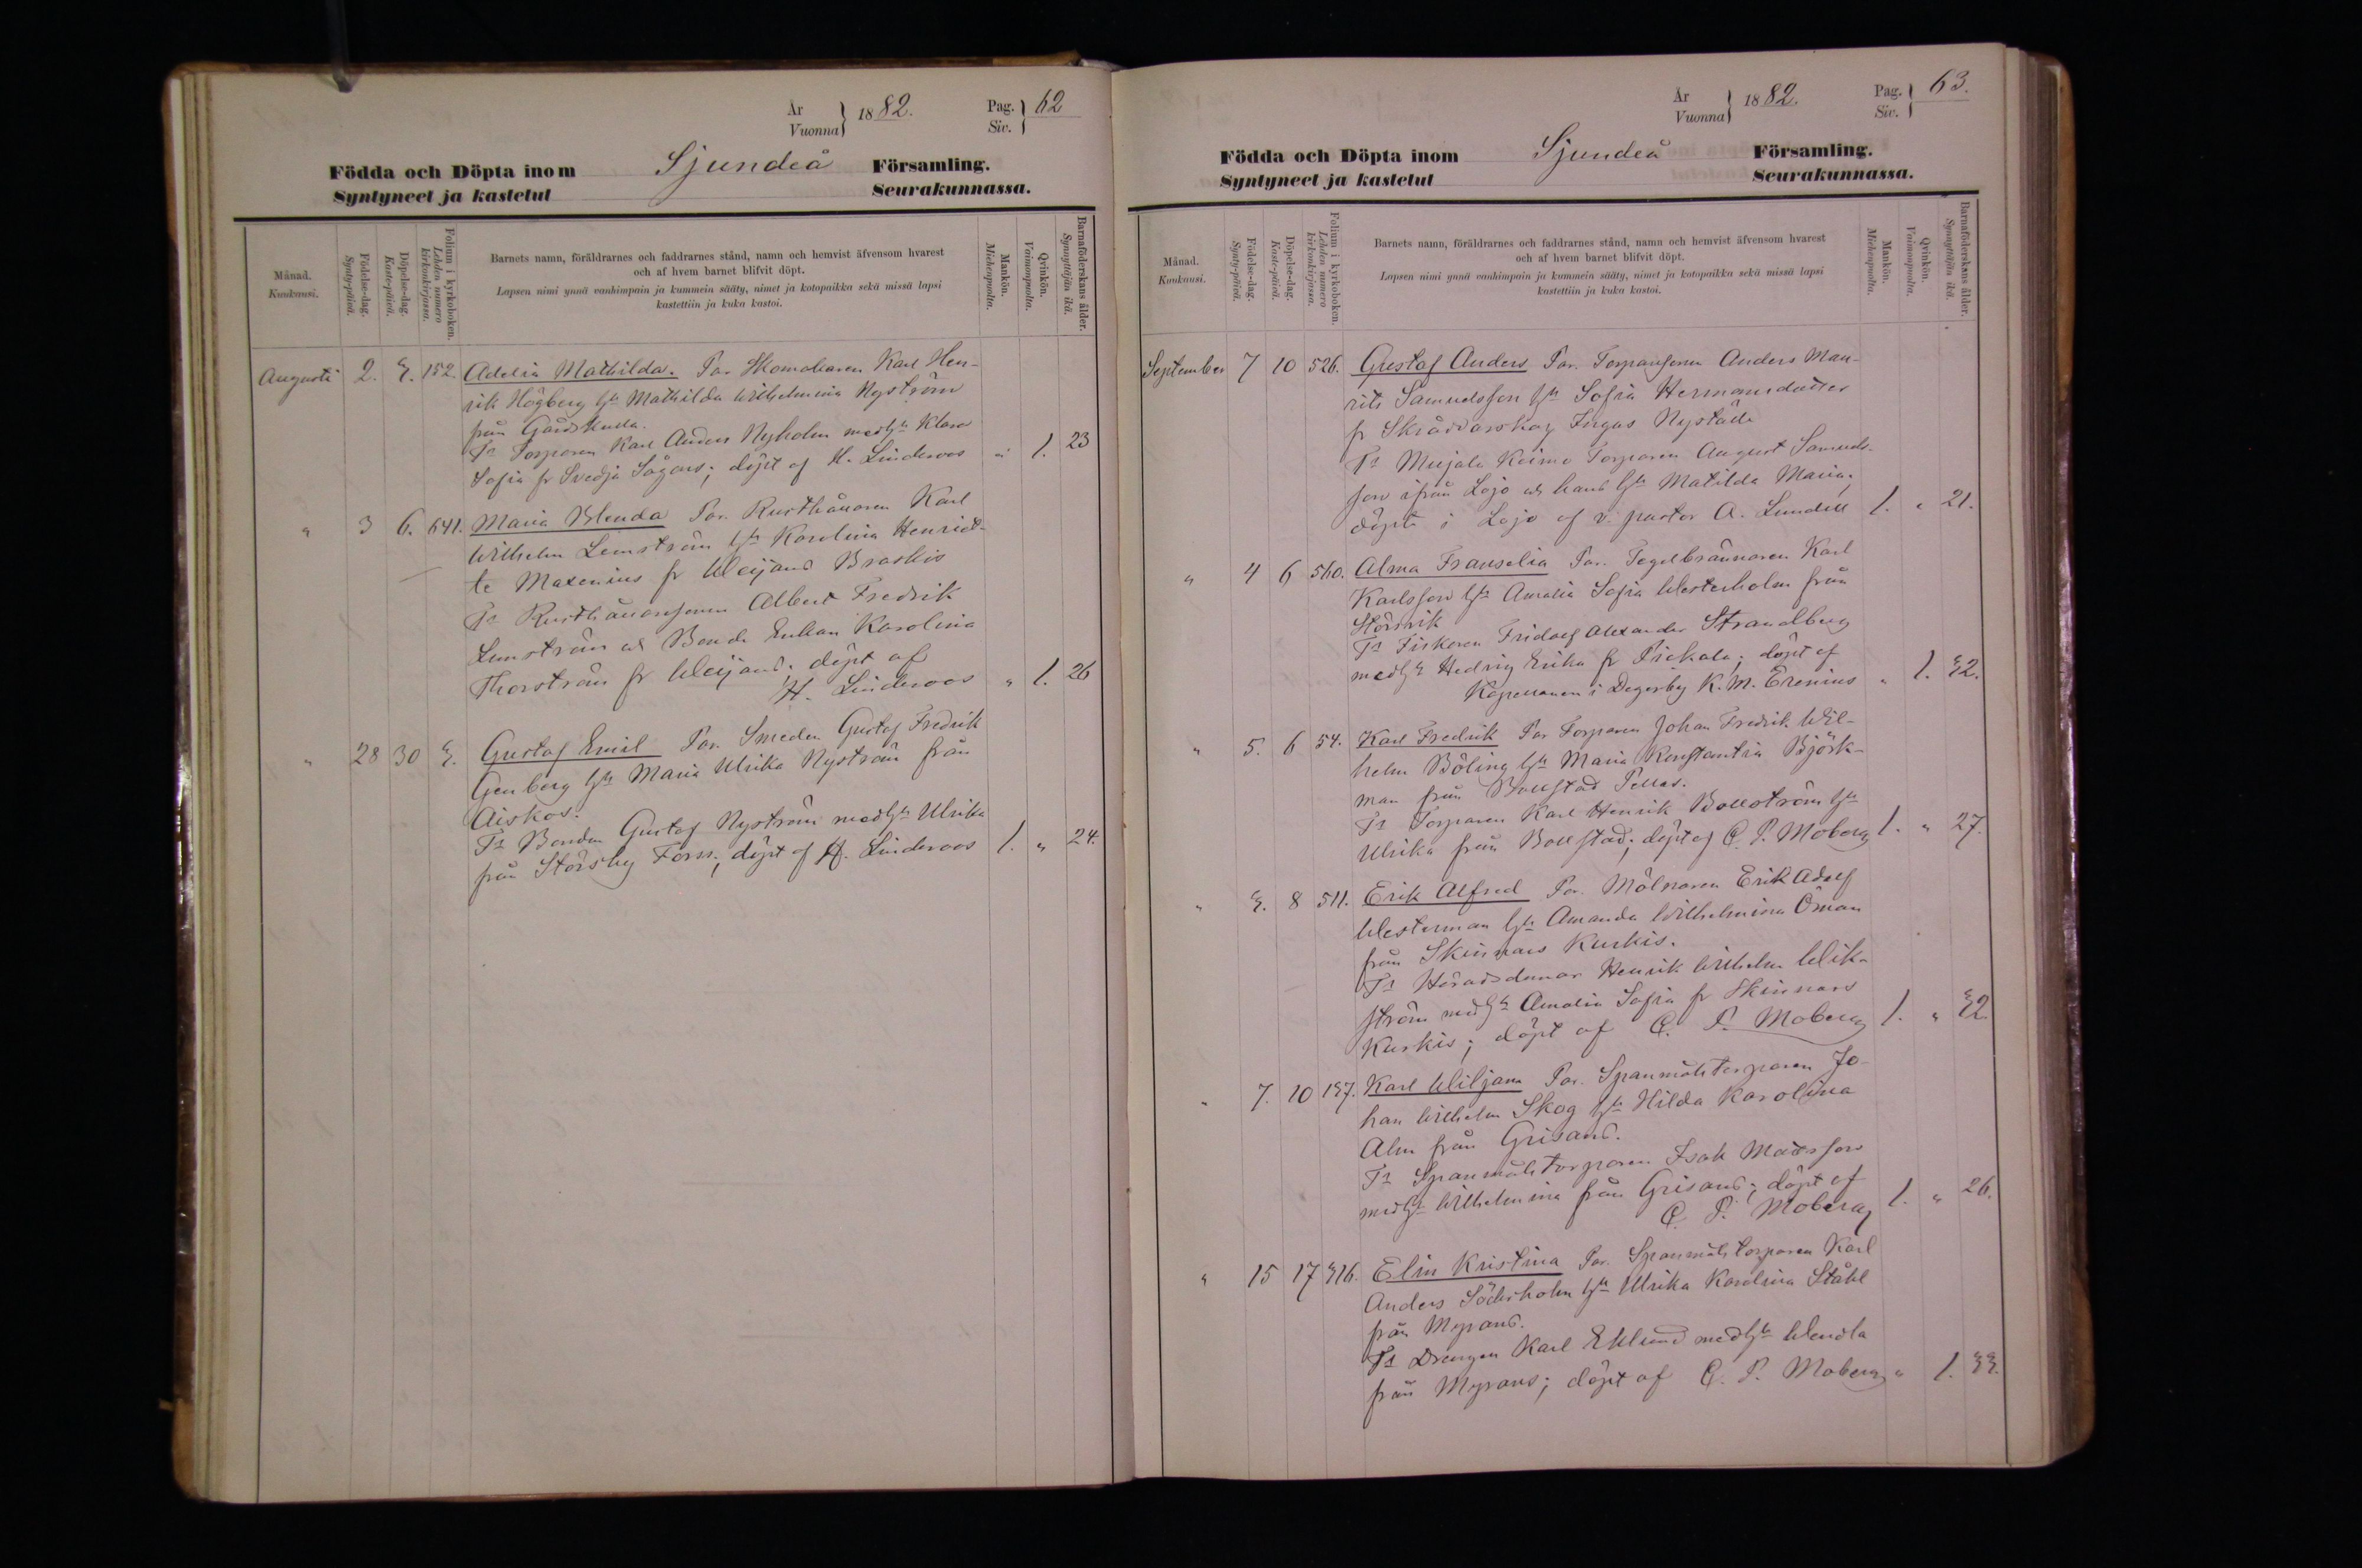 År
Vuonna
1882.
Pag.
Siv.
62
Födda och Döpta inom Sjundeå Församling.
Syntyneet ja kastetut Seurakunnassa.
Månad.
Kuukausi.
Födelse-dag.
Synty-päivä.
Döpelse-dag.
Kaste-päivä.
Folium i kyrkoboken.
Lehden numero
kirkonkirjassa.
Barnets namn, föräldrarnes och faddrarnes stånd, namn och hemvist äfvensom hvarest
och af hvem barnet blifvit döpt.
Lapsen nimi ynnä vanhimpain ja kummein sääty, nimet ja kotopaikka sekä missä lapsi
kastettiin ja kuka kastoi.
Mankön.
Miehenpuolta.
Qvinkön.
Vaimonpuolta.
Barnaföderskans ålder.
Synnyttäjän ikä.
Augusti 2. 3. 152. Adelia Mathilda. Par. Skomakaren Karl Hen-
rik Högberg hu Mathilda Wilhelmina Nyström
från Gårdskulla.
Ts Torparen Karl Anders Nyholm med hu Klara
Sofia fr Svedja Sågars; döpt af H. Linderoos " 1. 23
" 3 6. 641. Maria Blenda Par. Rusthållaren Karl
Wilhelm Lemström hu Karolina Henriet-
te Maxenius fr Weijans Braskis
Ts Rusthållaresonen Albert Fredrik
Lemström och Bonde Enkan Karolina
Thorström fr Weijans; döpt af
H. Linderoos " 1. 26
" 28 30 3. Gustaf Emil Par. Smeden Gustaf Fredrik
Genberg hu Maria Ulrika Nyström från
Aiskos.
Ts Bonden Gustaf Nyström med hu Ulrika
från Störsby Forss; döpt af H. Linderoos 1. " 24.
År
Vuonna
1882.
Pag.
Siv.
63.
Födda och Döpta inom Sjundeå Församling.
Syntyneet ja kastetut Seurakunnassa.
Månad.
Kuukausi.
Födelse-dag.
Synty-päivä.
Döpelse-dag.
Kaste-päivä.
Folium i kyrkoboken.
Lehden numero
kirkonkirjassa.
Barnets namn, föräldrarnes och faddrarnes stånd, namn och hemvist äfvensom hvarest
och af hvem barnet blifvit döpt.
Lapsen nimi ynnä vanhimpain ja kummein sääty, nimet ja kotopaikka sekä missä lapsi
kastettiin ja kuka kastoi.
Mankön.
Miehenpuolta.
Qvinkön.
Vaimonpuolta.
Barnaföderskans ålder.
Synnyttäjän ikä.
September 7 10 526. Gustaf Anders Par. Torparesonen Anders Mau-
rits Samuelsson hu Sofia Hermansdotter
fr Skräddarskog Nystade
Ts Keimo Torparen August Samuels-
son ifrån Lojo och hans hu Matilda Maria;
döpt i Lojo af v. pastor A. Lundell 1. " 21.
" 4 6 560. Alma Franselia Par. Tegelbrännaren Karl
Karlsson hu Amalia Sofia Westerholm från
Störsvik
Ts Fiskaren Fridolf Alexander Strandberg
med hu Hedvig Erika fr Pickala; döpt af
Kapellanen i Degerby K. M. Erenius " 1. 32.
" 5. 6 54. Karl Fredrik Par Torparen Johan Fredrik Wil-
helm Böling hu Maria Konstantia Björk-
man från Bollstad Pellas.
Ts Torparen Karl Henrik Bollström hu
Ulrika från Bollstad; döpt af C. P. Moberg 1. " 27.
" 3. 8 511. Erik Alfred Par. Mölnaren Erik Adolf
Westerman hu Amanda Wilhelmina Öman
från Skinnars Kurkis.
Ts Häradsdomar Henrik Wilhelm Wik-
ström med hu Amalia Sofia fr Skinnars
Kurkis; döpt af C. P. Moberg 1. " 32
" 7. 10 137. Karl Wiljam Par. Spanmålstorparen Jo-
han Wilhelm Skog hu Hilda Karolina
Alm från Grisans.
Ts Spanmålstorparen Isak Matsson
med hu Wilhelmina från Grisans; döpt af
C. P. Moberg 1. " 26.
" 15 17 316. Elin Kristina Par. Spanmålstorparen Karl
Anders Söderholm hu Ulrika Karolina Ståhl
från Myrans.
Ts Drengen Karl Eklund med hu Wendla
från Myrans; döpt af C. P. Moberg " 1. 33.